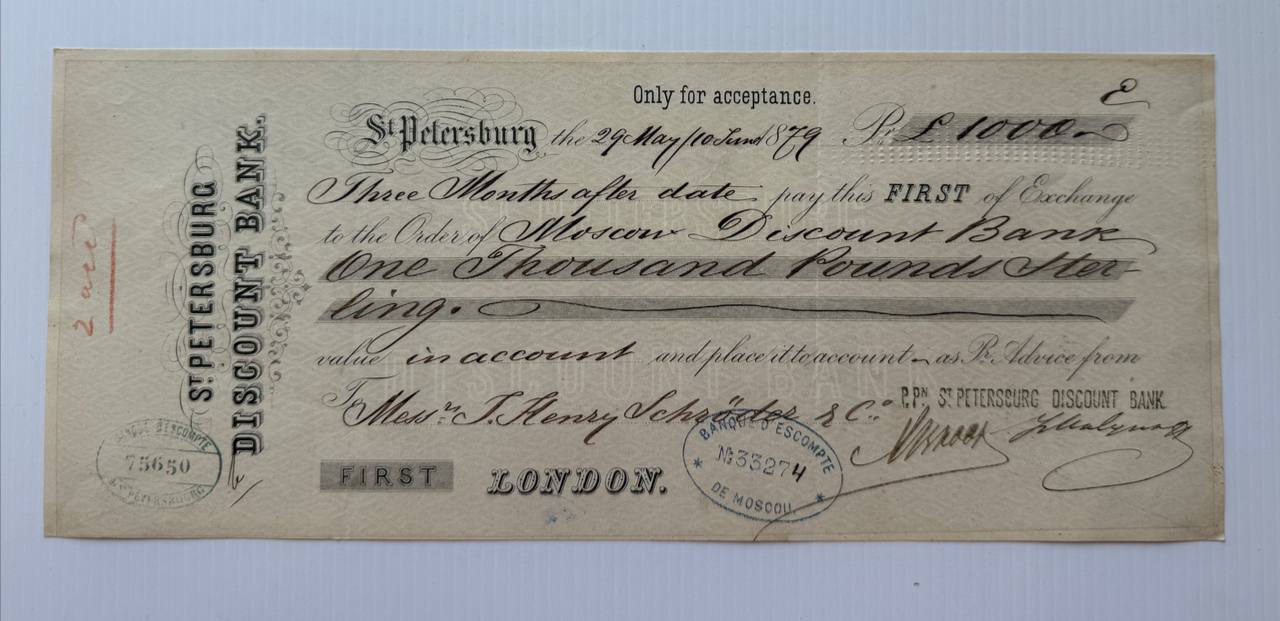 Only for acceptance.
£
St Petersburg the 29 May/10 June 1879 Pr. £ 1000.-
Three Months after date pay this FIRST of Exchange
to the Order of Moscow Discount Bank
One Thousand Pounds Ster-
ling.
value in account and place it to account as Pr. Advice from
To Messrs J. Henry Schröder & Co.
P. Pn ST PETERSBURG DISCOUNT BANK
FIRST LONDON.
BANQUE D'ESCOMPTE
№ 33274
DE MOSCOU.
ST PETERSBURG
DISCOUNT BANK.
BANQUE D'ESCOMPTE
75650
ST PETERSBOURG
2 acc
DISCOUNT BANK